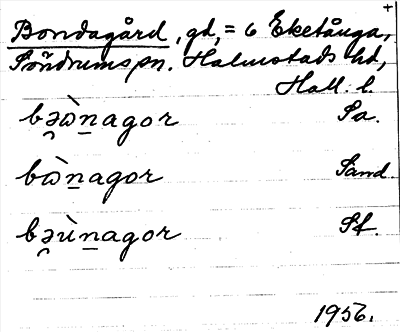 +
Bondagård, gd, = 6 Eketånga,
Söndrums sn. Halmstads hd,
Hall. l.
bə̯ɷ̀n̲agor Sa.
bɷ̀n̲agor Sand.
bə̯ùn̲agor Sf.
1956.